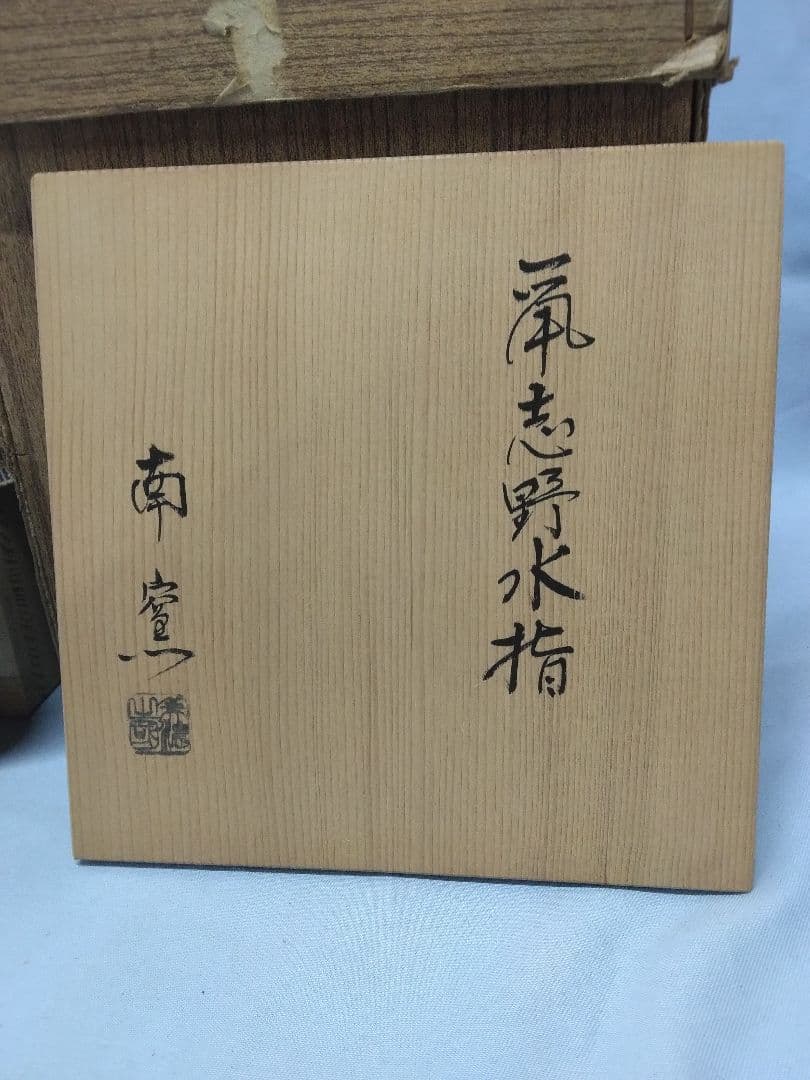 鼠志野水指
南窯